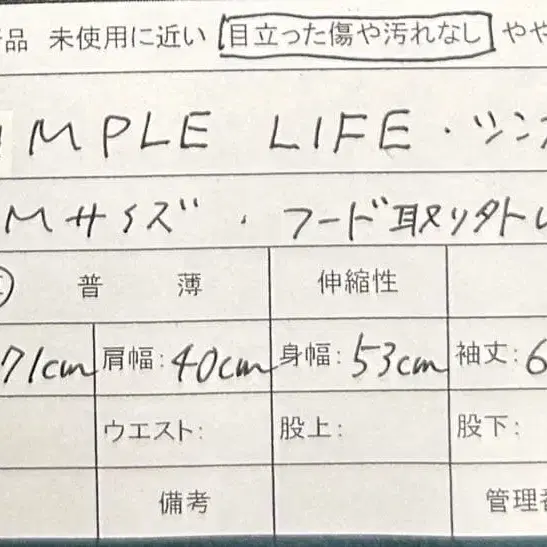 品 未使用に近い 目立った傷や汚れなし やや
IMPLE LIFE・シンプ
Mサイズ・フード取り外し
普 薄 伸縮性
71cm 肩幅:40cm 身幅:53cm 袖丈:6
ウエスト: 股上: 股下:
備考 管理番